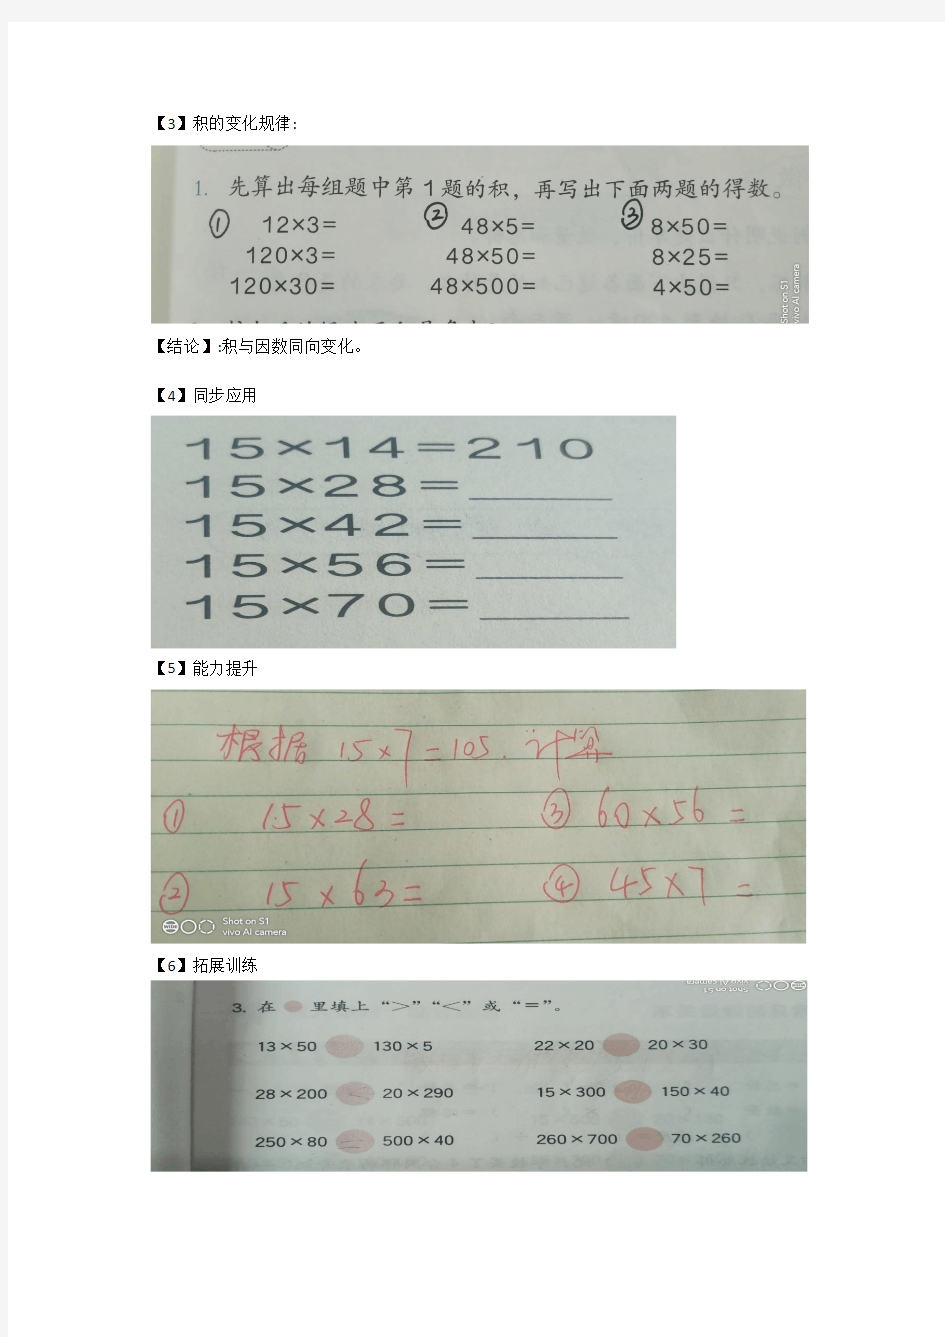 【3】积的变化规律:
1. 先算出每组题中第1题的积，再写出下面两题的得数。
① 12×3= ② 48×5= ③ 8×50=
120×3= 48×50= 8×25=
120×30= 48×500= 4×50=
Shot on S1
vivo AI camera
【结论】:积与因数同向变化。
【4】同步应用
15×14=210
15×28=
15×42=
15×56=
15×70=
【5】能力提升
根据 15×7=105. 计算
① 15×28= ③ 60×56=
② 15×63= ④ 45×7=
Shot on S1
vivo AI camera
【6】拓展训练
Shot on S1
vivo AI camera
3. 在 里填上“>”“<”或“=”。
13×50 130×5 22×20 20×30
28×200 20×290 15×300 150×40
250×80 500×40 260×700 70×260